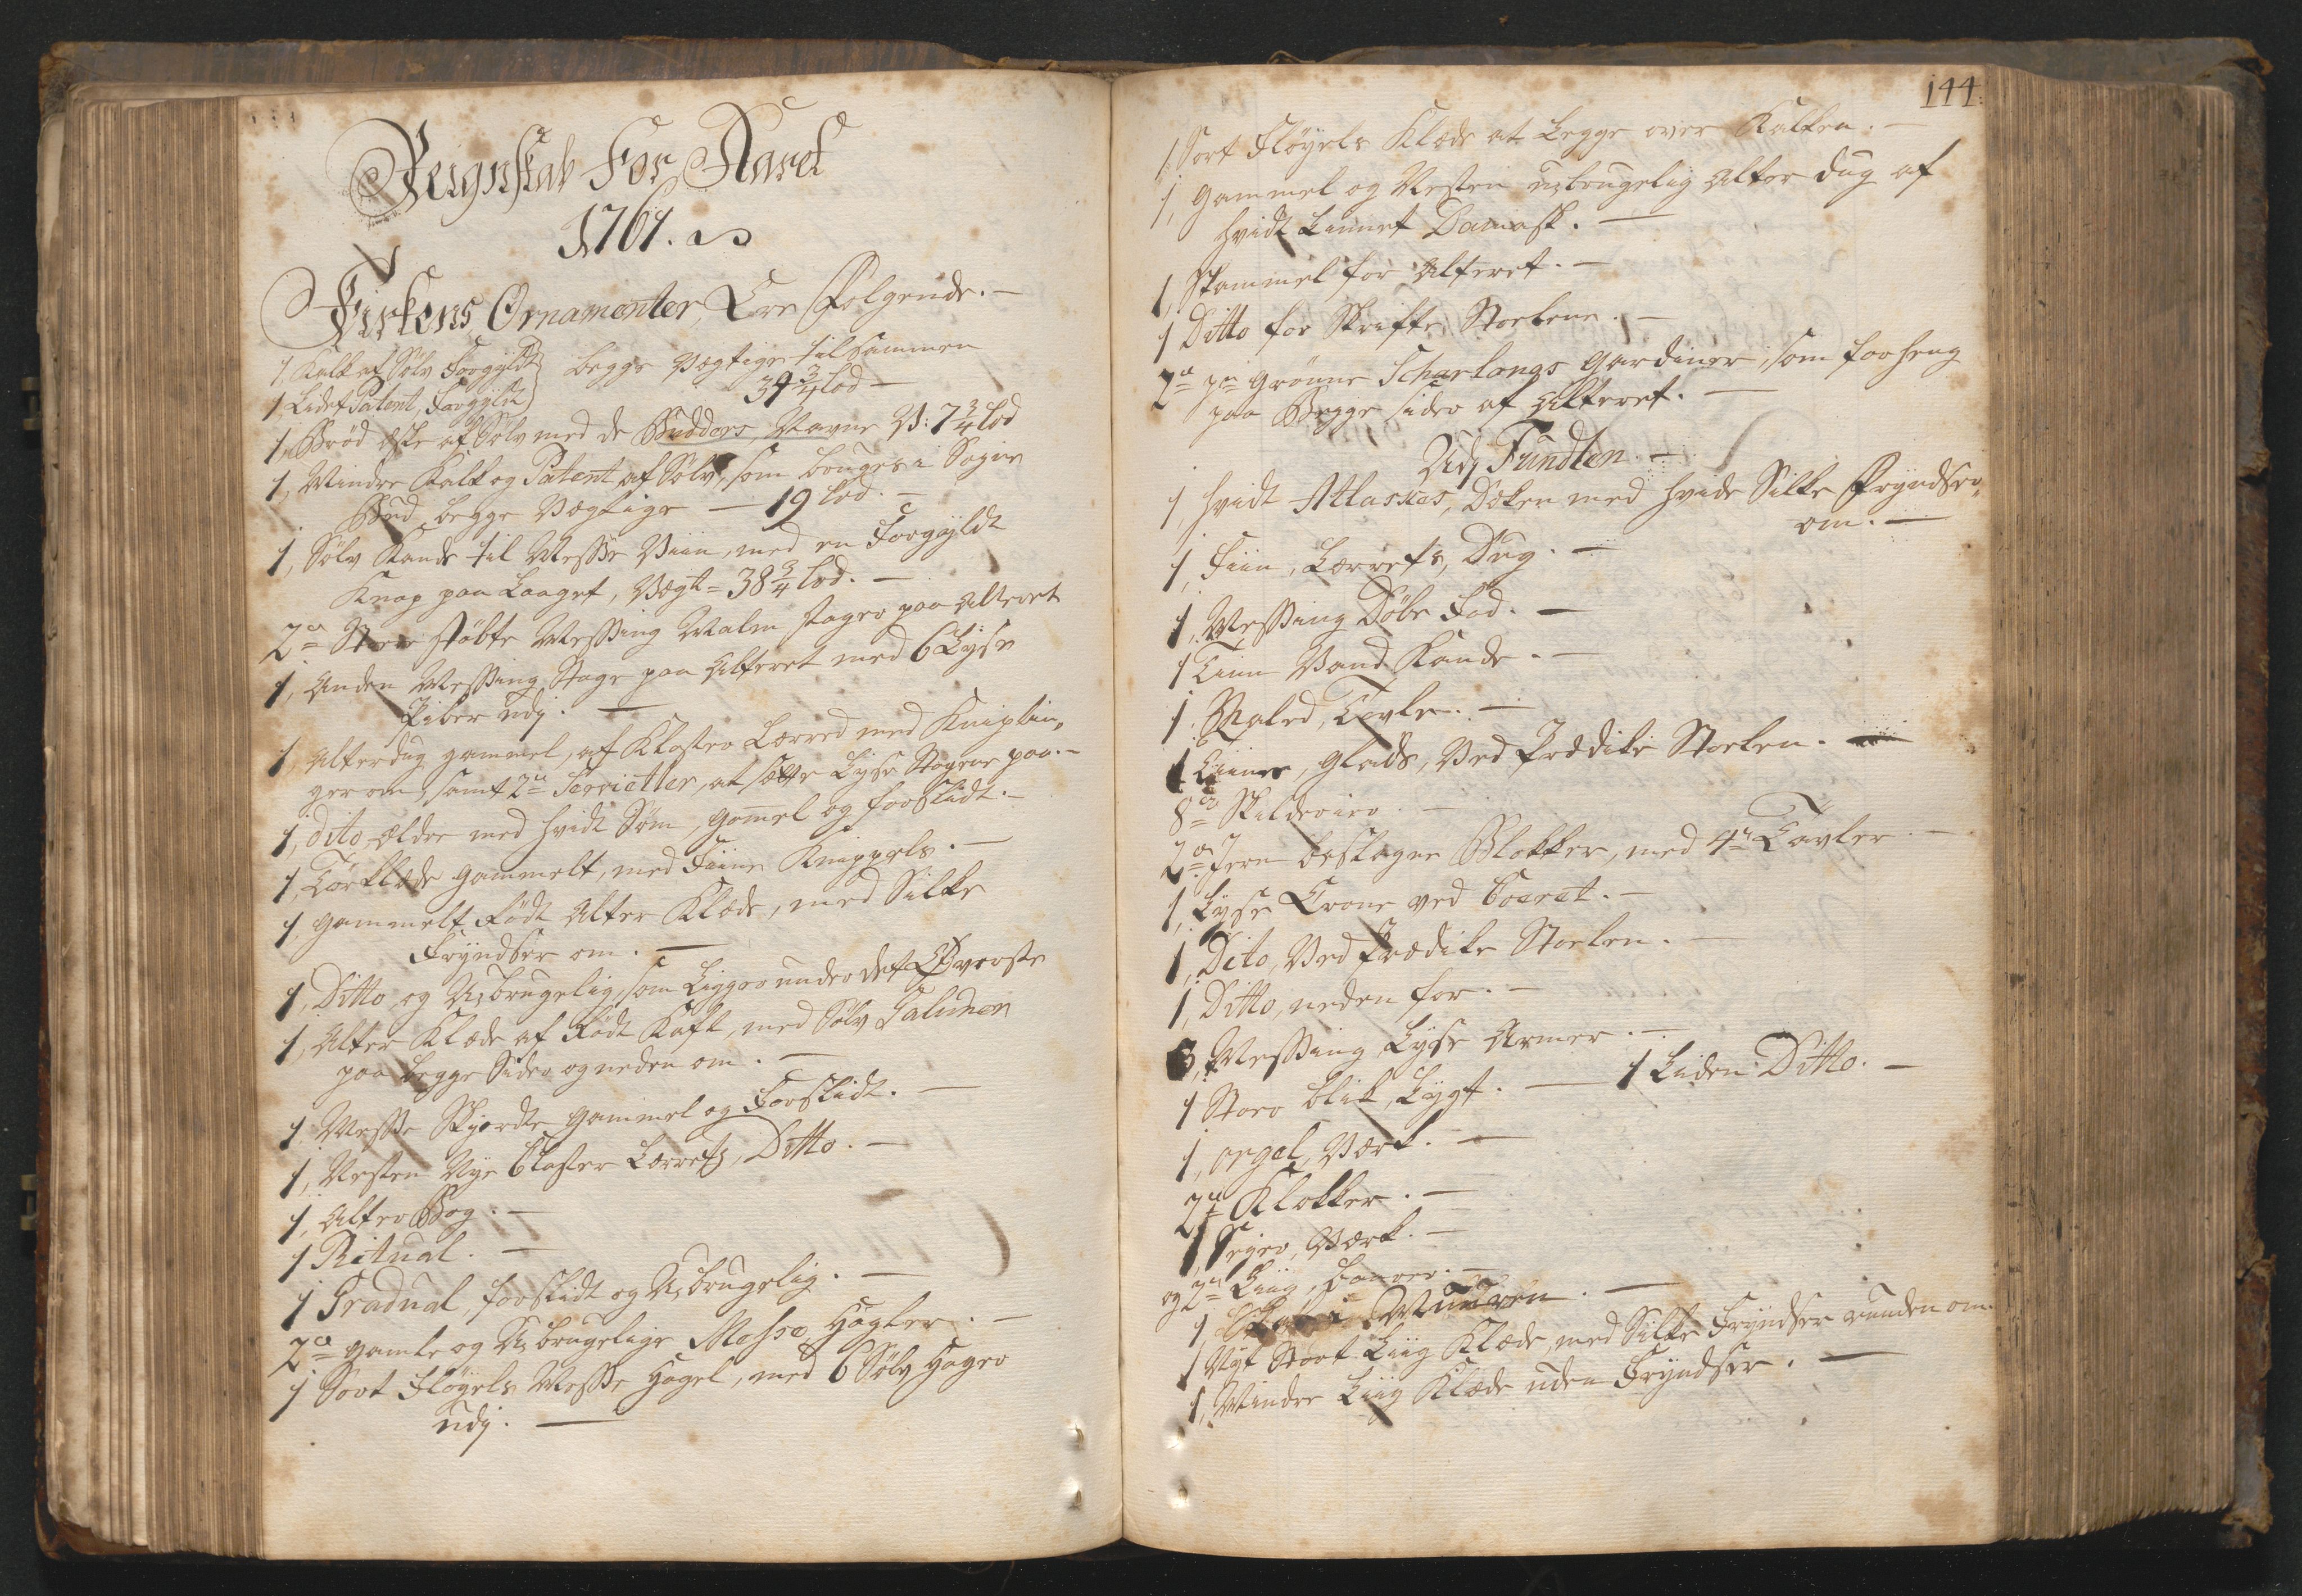 Regnskab For Aaret
1761.
Kirkens Ornamenter, Ere Følgende.
1, Kalk af Sølv Forgyldt
1 Lidet Patent, Forgyldt
begge Vægtige tilsammen
39 3/4 lod
1, Brød Eske af Sølv med de Budders, Navne V: 7 3/4 lod
1, Mindre Kalk og Patent af Sølv, som bruges i Sogne
Bud, begge Vegtige — 19 lod. —
1, Sølv Kande til Messe Viin, med en Forgyldt
Knap paa Laaget, Vegt = 38 3/4 lod. —
2de Store støbte Messing Malm stager paa Alteret
1, Anden Messing Stage paa Alteret med 6 Lyse
Piber udj. —
1, Alterdug gammel, af Kloster Lærred med Kniplin„
ger om, samt 2de Servietter, at sætte Lyse Stagene paa. —
1, dito ældre med hvidt Søm, gamel og forslidt. —
1, Tørklæde gammelt, med Fiine Knippels. —
1 gammelt Rødt Alter Klæde, med Silke
Fryndser om. —
1, Ditto og Ubrugelig, som Ligger under det Øverste
1, Alter Klæde af Rødt Kaft, med Sølv Galuner
paa begge Sider og neden om. —
1. Messe Skjorte gammel og Forslidt. —
1, Nesten Nye Closter Lærrets, Ditto. —
1, Alter Bog. —
1 Ritual. —
1 Gradual, forslidt og Ubrugelig. —
2de gamle og Ubrugelige Messe Hagler. —
1 Sort Fløyels Messe Hagel, med 6 Sølv Hager
udj. —
144.
1, Sort Fløyels Klæde at Legge over Kalken. —
1, gammel og Nesten ubrugelig Alter Dug af
hvidt Linnet Damask. —
1, Skammel for Alteret. —
1 Ditto for Skrifte Stoelene. —
2de pr Grønne Scharlongs Gardiner, som forheng
paa Begge sider af Alteret. —
Udj Fundten. —
1, hvidt Atlaskes, Døken med hvide Silke Fryndser„
om. —
1, Fiin, Lærrets, Dug. —
1, Messing Døbe Fad. —
1 Tiin Vand Kande. —
1. Maled, Tavle. —
1 Tiime, Glads, Ved Prædike Stoelen. —
8te Skilderier. —
2de Jern beslagne Blokker, med 4re Tavler —
1, Lyse Crone ved Coeret. —
1, Dito, Ved Prædike Stoelen. —
1, Ditto, neden for. —
3, Messing Lyse Armer. —
1 Stoer blik, Lygt. — 1 Liden Ditto. —
1, orgel, Værk. —
2de Klokker. —
1 Seier, Værk. —
og 2de Liig, Baarer. —
1 Skab i Muuren. —
1 Nyt Stort Liig Klæde, med Silke Fryndser runden om.
1, Mindre Liig Klæde uden Fryndser. —